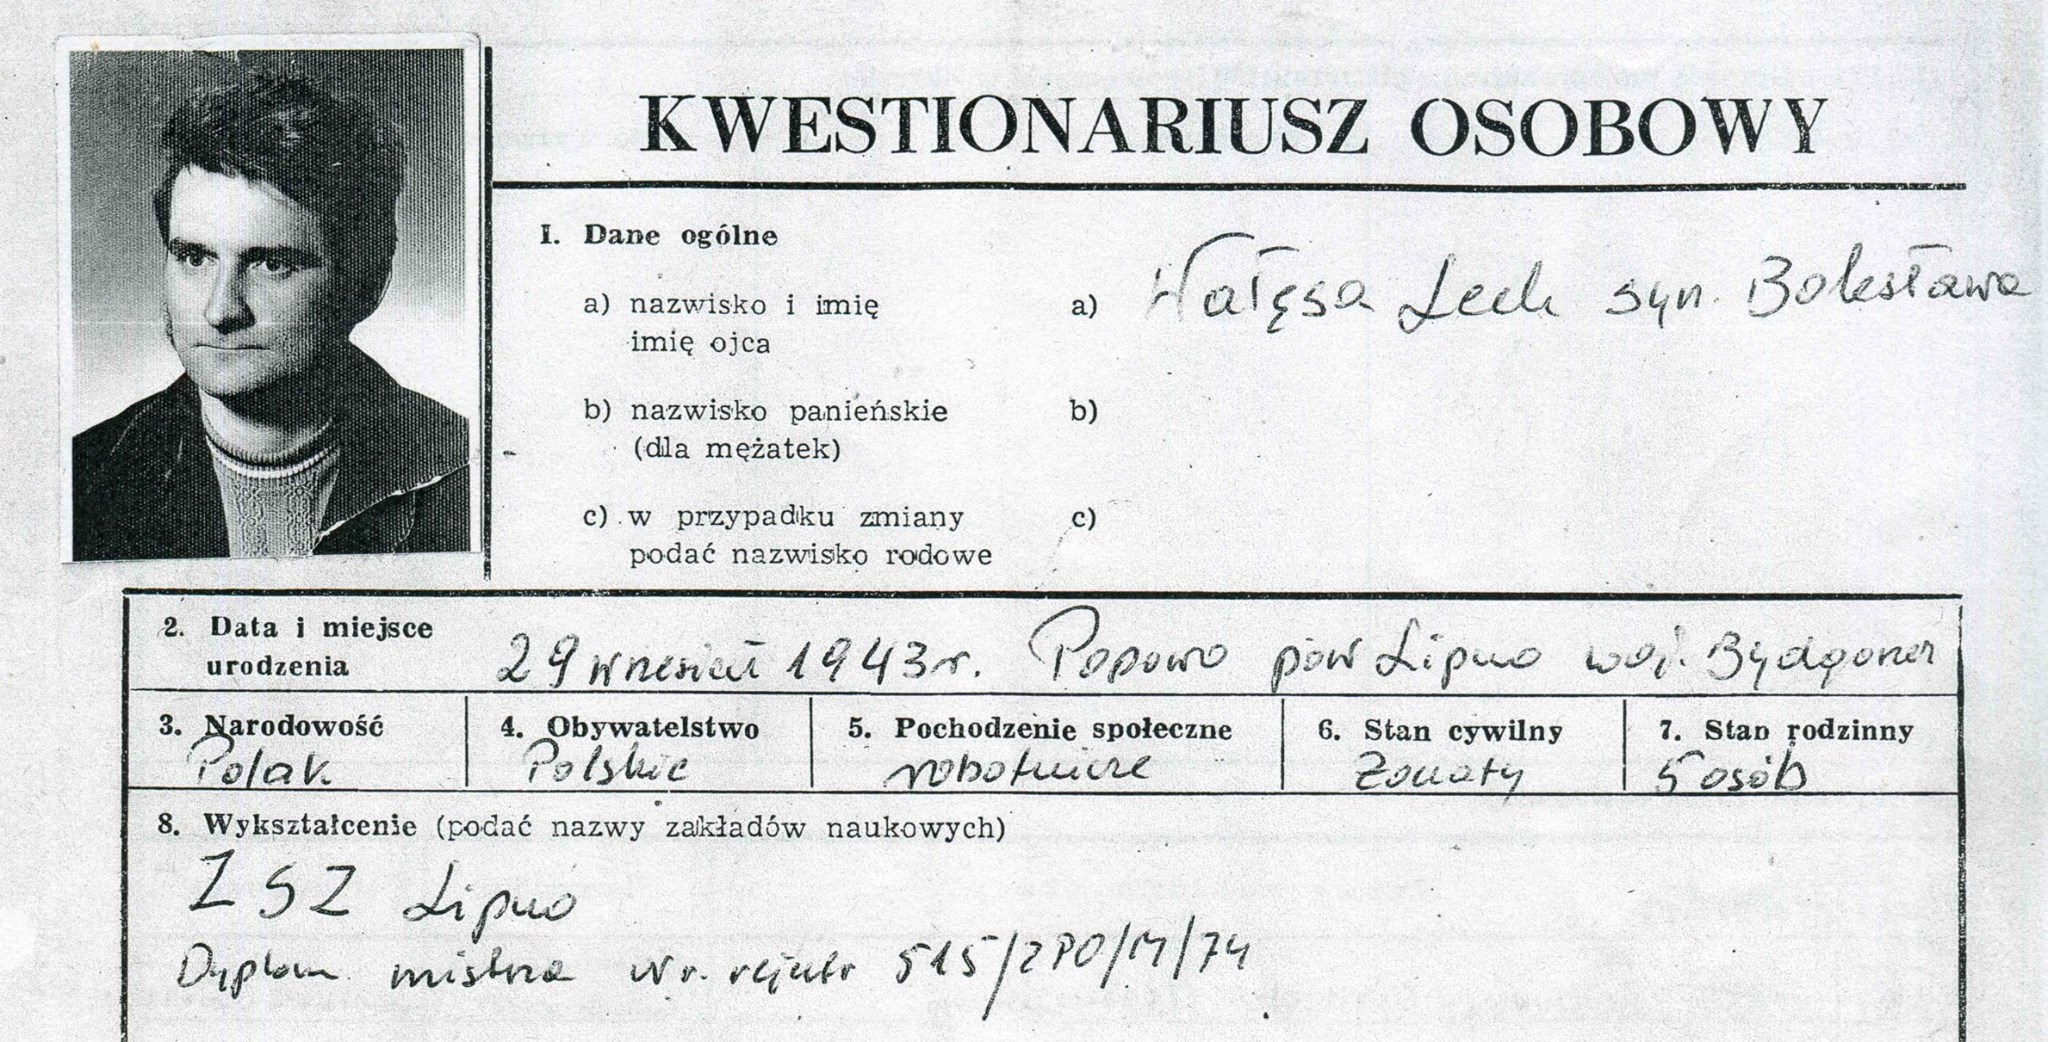 KWESTIONARIUSZ OSOBOWY
I. Dane ogólne
a) nazwisko i imię
imię ojca
a) Wałęsa Lech syn. Bolesława
b) nazwisko panieńskie
(dla mężatek)
b)
c) w przypadku zmiany
podać nazwisko rodowe
c)
2. Data i miejsce
urodzenia
29 wrzesień 1943 r. Popowo pow Lipno woj.
3. Narodowość
Polak.
4. Obywatelstwo
Polskie
5. Pochodzenie społeczne
robotnicze
6. Stan cywilny
Żonaty
7. Stan rodzinny
5 osób
8. Wykształcenie (podać nazwy zakładów naukowych)
ZSZ Lipno
Dyplom mistrza Nr. rejestr 515/ZPO/M/74